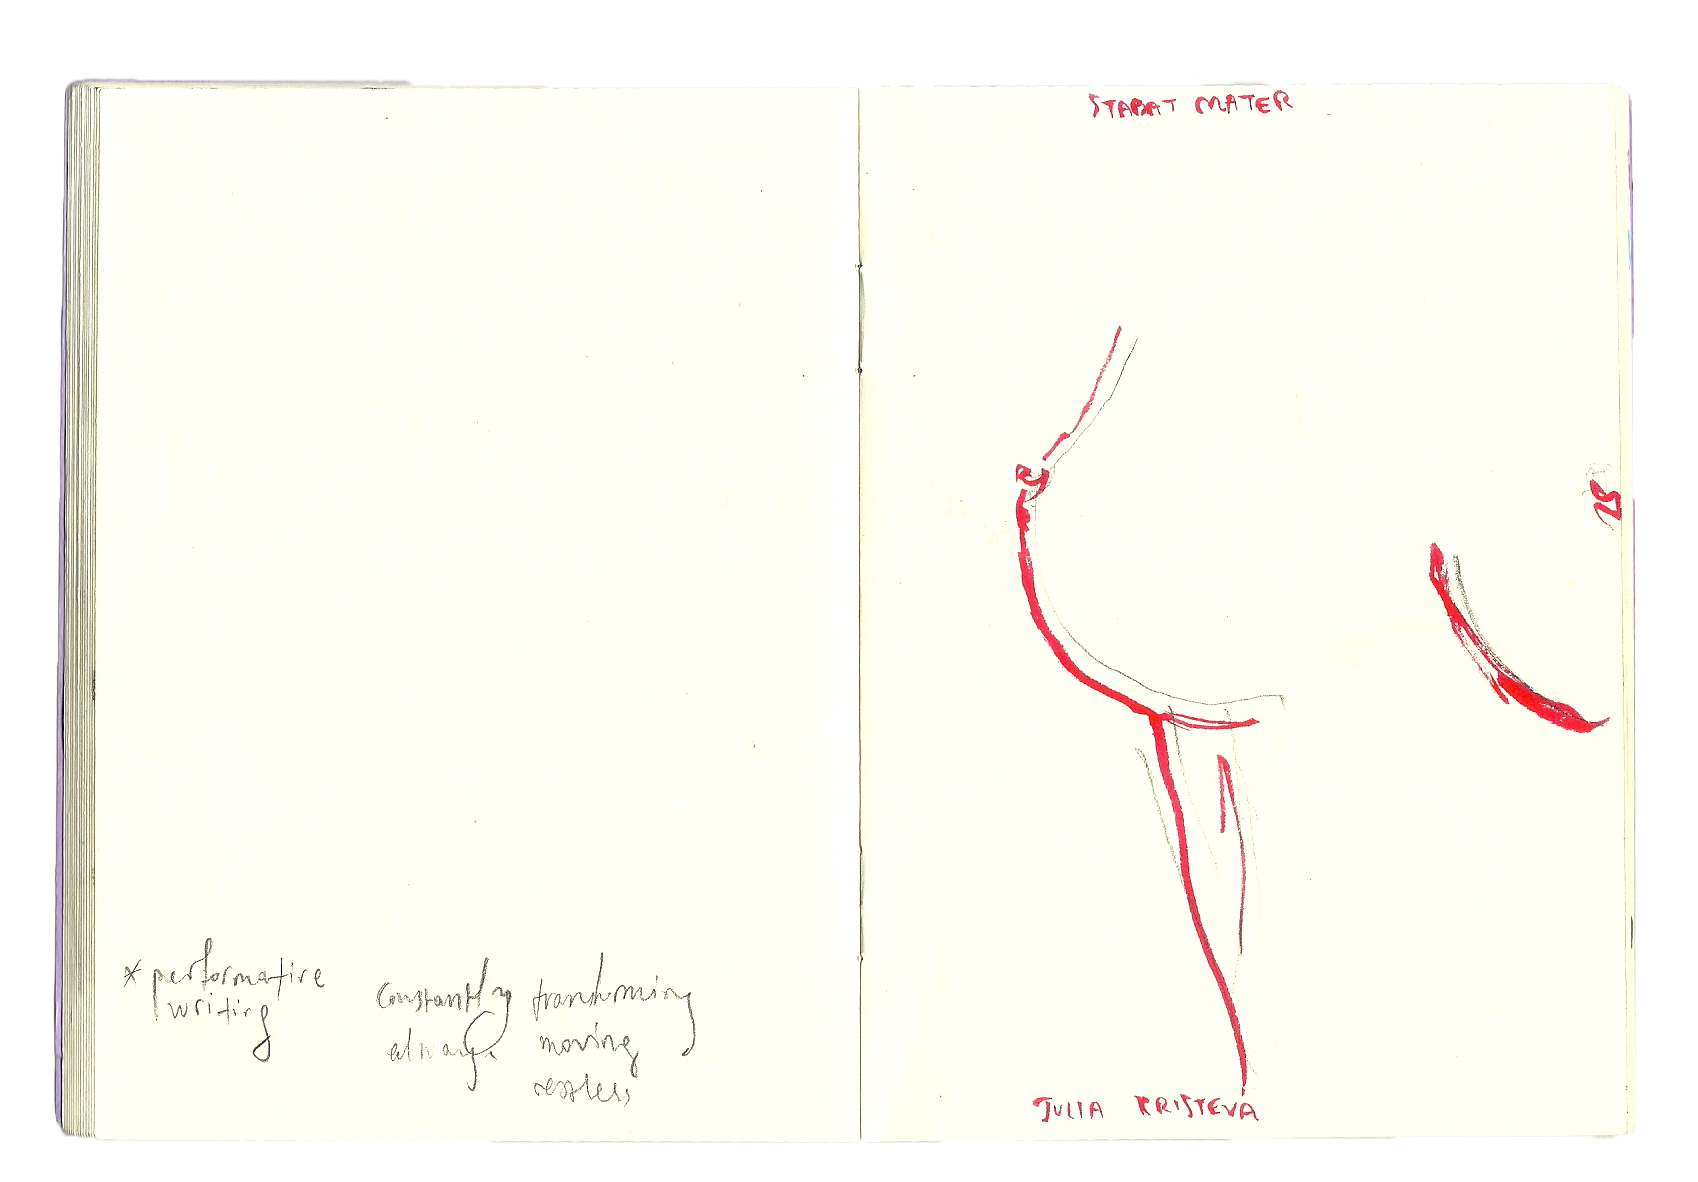 * performative
writing
constantly transforming
always moving
restless
STABAT MATER
JULIA KRISTEVA